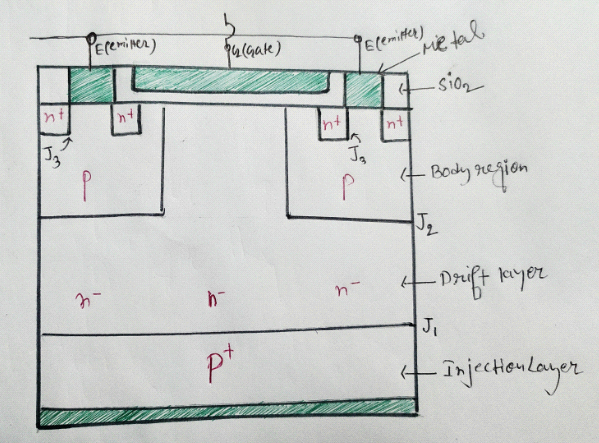 E(emitter)
G(gate)
E(emitter)
Metal
SiO2
n+
n+
n+
n+
J3
J3
P
P
Body region
J2
n-
n-
n-
Drift layer
J1
P+
Injection Layer